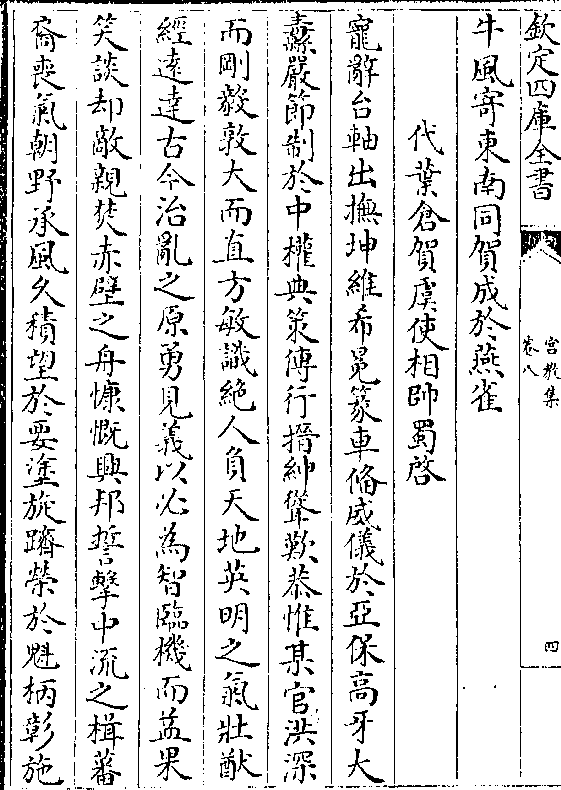 欽定四庫全書
宫教集
卷八
四
牛風寄東南同賀成於燕雀
代葉倉賀虞使相帥蜀啓
寵辭台軸出撫坤維希冕篆車偹威儀於亞保高牙大
纛嚴節制於中權典策傳行搢紳聳歎恭惟某官洪深
而剛毅敦大而直方敏識絶人負天地英明之氣壯猷
經逺達古今治亂之原勇見義以必為智臨機而葢果
笑談却敵親焚赤壁之舟慷慨興邦誓擊中流之楫蕃
裔喪氣朝野承風久積望於要塗旋躋榮於魁柄彰施